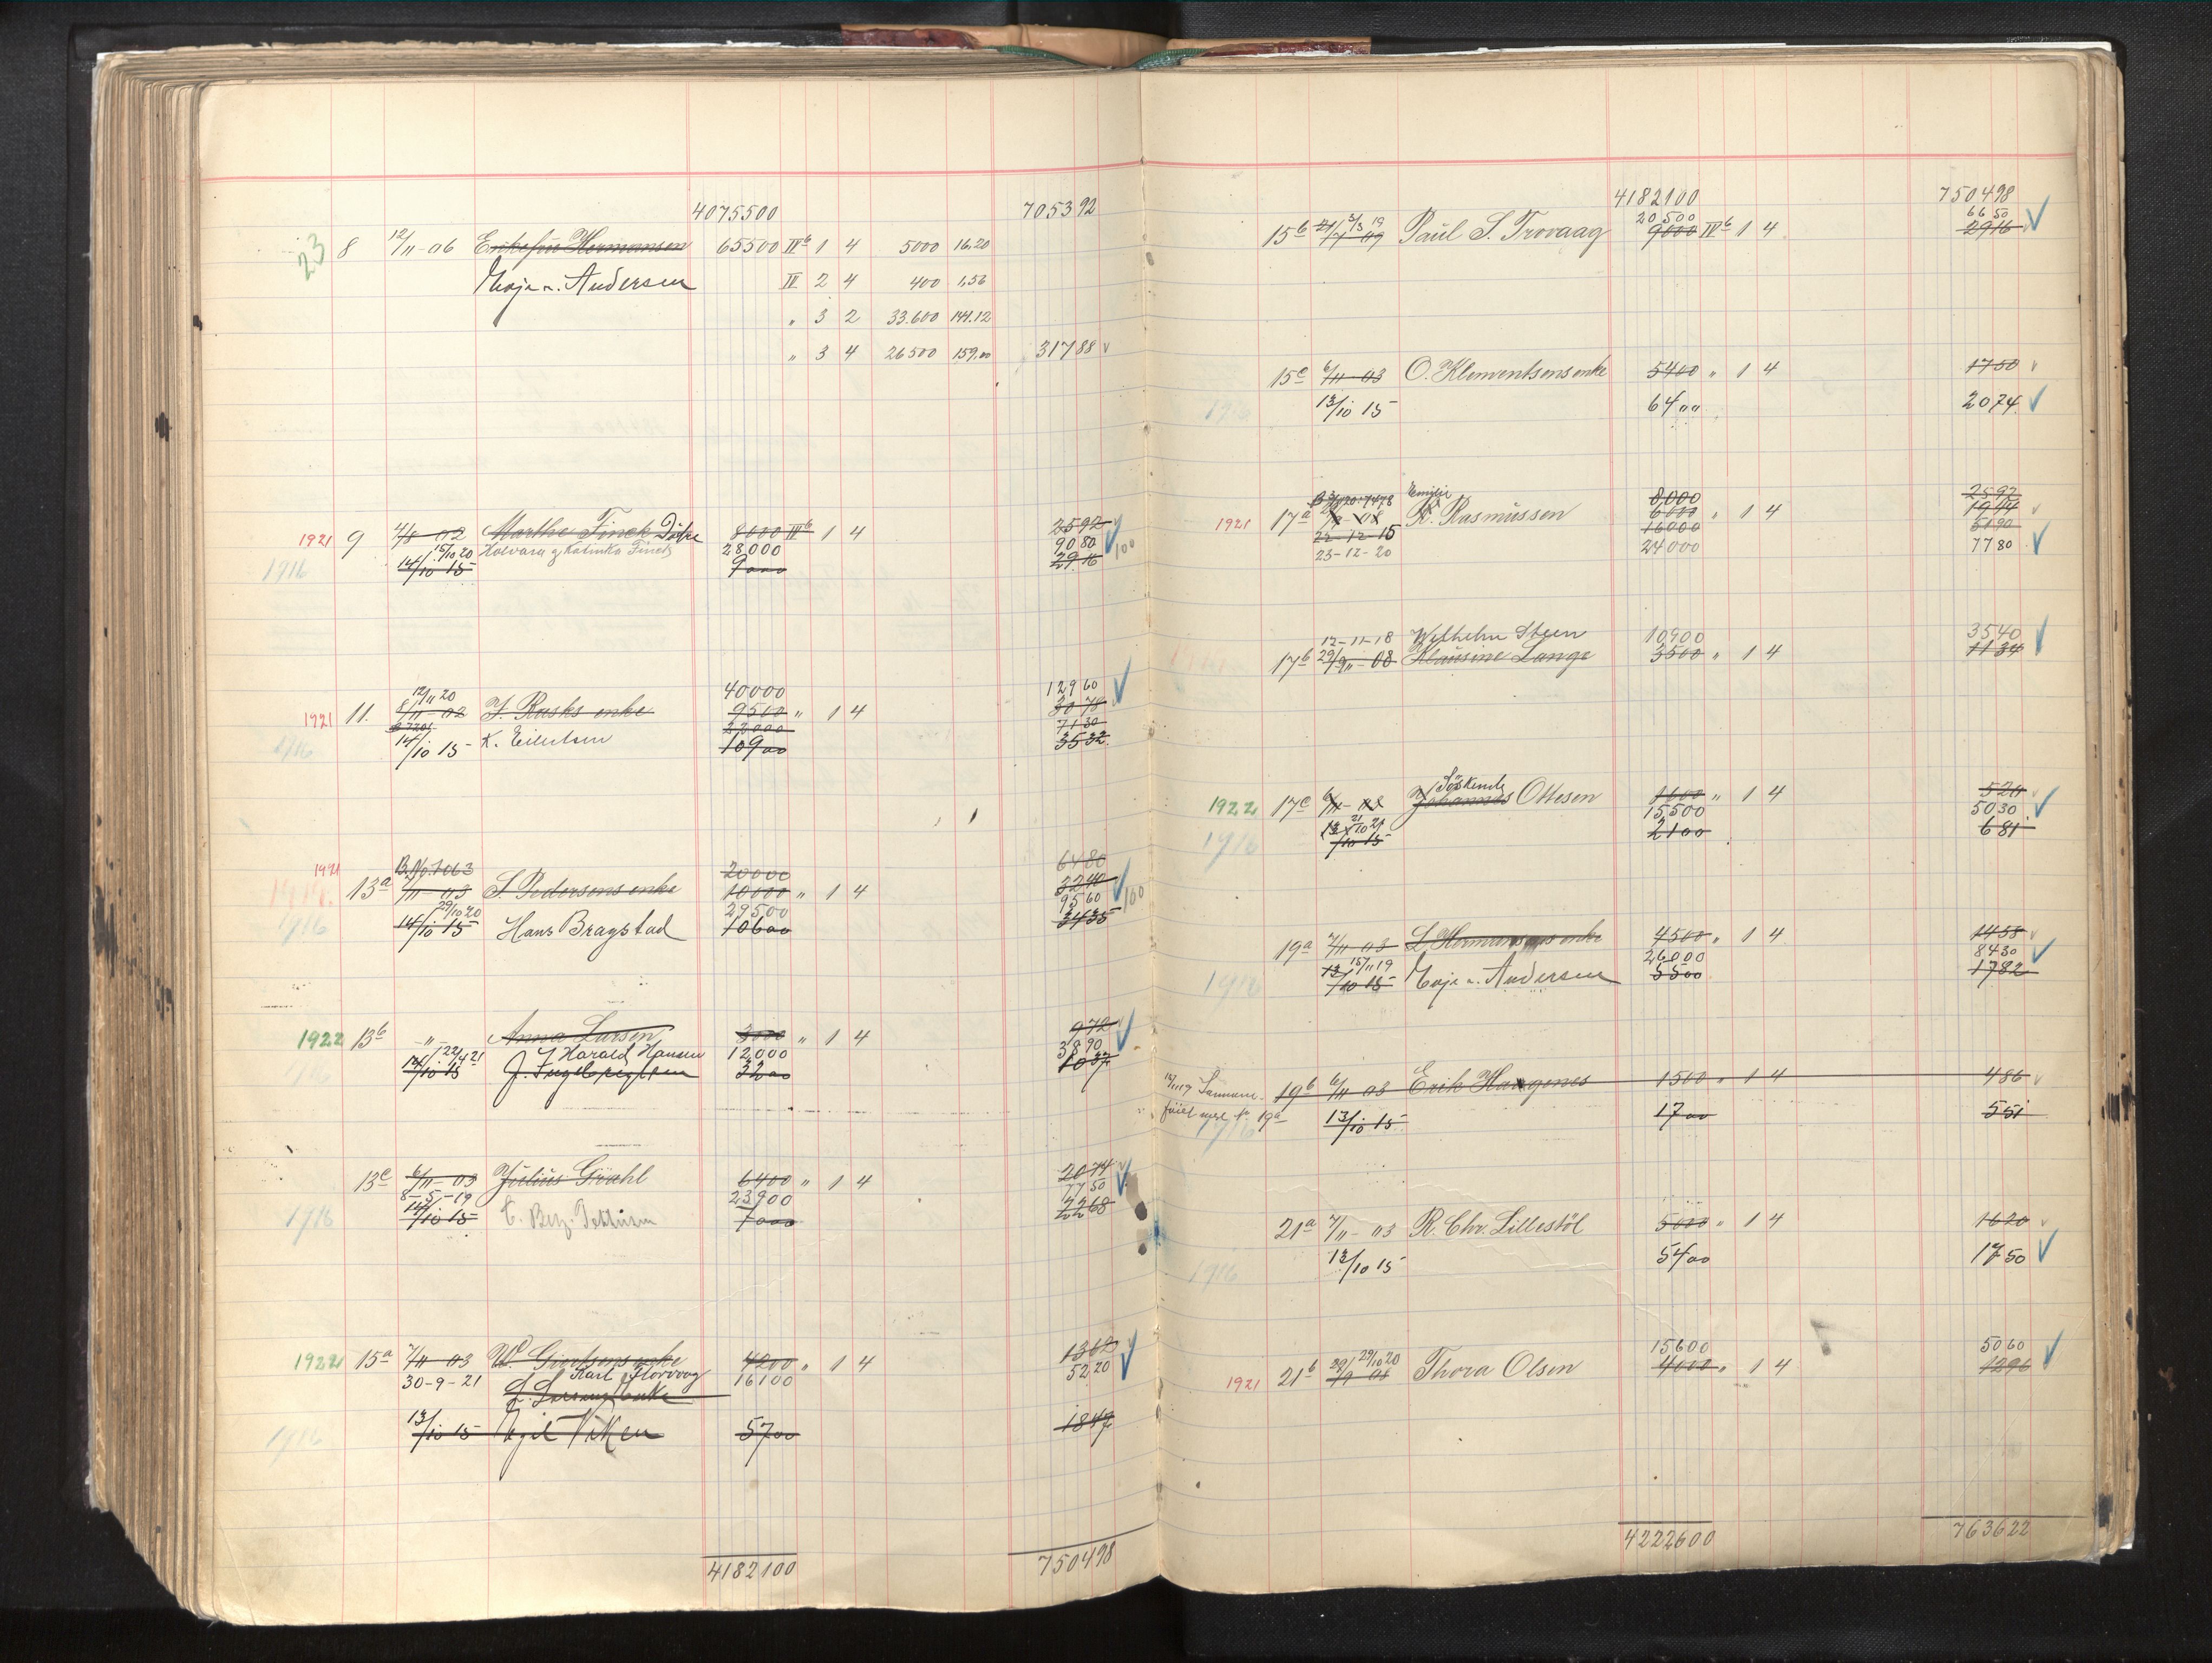 4075500 705392
23 8 12/11 - 06 Enkefru Hermansen 65500 IV b 1 4 5000 16,20
Andersen IV 2 4 400 1,56
" 3 2 33.600 141.12
" 3 4 26500 159,00 31788
1921 9 4/8 - 02 Marthe Finck Døtre 8000 IV b 1 4 2592
15/10 20 Halvara og Katinka Finck 28,000 9080 100
1916 14/10 15 9000 2916
12/11 20 40000 12960
1921 11. 8/11 - 02 J. Rasks enke 9500 " 1 4 3078
22000 7130
1916 14/10 15 K. Eilertsen 10900 3532
1921 B.No. 1063 20000 6480
13a 7/11 - 03 S. Pedersens enke 10000 " 1 4 3240
29/10 20 29500 9560 100
1916 14/10 15 Hans Bragstad 10600 3435
1922 13b - " - Anna Larsen 3000 " 1 4 972
22/4 21 Harald Hansen 12000 3890
1916 14/10 15 J. Ingebrigtsen 3200 1037
13c 6/11 - 03 Julius Grahl 6400 " 1 4 2074
8-5-19 23900 7750
1916 14/10 15 7000 2268
1922 15a 7/11 03 W. Giertsens enke 4200 " 1 4 1360
30-9-21 Karl Florvaag 16100 5220
L. Larsens enke
1916 13/10 15 Viken 5700 1847
4182100 750498
4182100 750498
3/3 19 20500 6650
15b 21/7 09 Paul S. Trovaag 9000 IV b 1 4 2916
15c 6/11 - 03 O. Klementsens enke 5400 " 1 4 1750
1916 13/10 15 6400 2074
Emilie 8000 2592
1921 17a R. Rasmussen 6000 " 1 4 1944
22-12-15 16000 5190
23-12-20 24000 7780
12-11-18 Wilhelm Steen 10900 3540
17b 29/9 - 08 Klausine Lange 3500 " 1 4 1134
Söskende
1922 17c 6/11 - 03 Johannes Ottesen 1600 " 1 4 520
21/10 21 15500 5030
1916 13/10 15 2100 681
19a 7/11 - 03 L. Hermansens enke 4500 " 1 4 1458
15/11 19 26000 8430
1916 13/10 15 Andersen 5500 1782
15/11 19 Sammen- 19b 6/11 03 Erik Haugenes 1500 " 1 4 486
föiet med No. 19a
1916 13/10 15 1700 551
21a 7/11 - 03 R. Chr. Lillestöl 5000 " 1 4 1620
1916 13/10 15 5400 1750
29/10 20 15600 5060
1921 21b Thora Olsen 4000 " 1 4 1296
4222600 763622